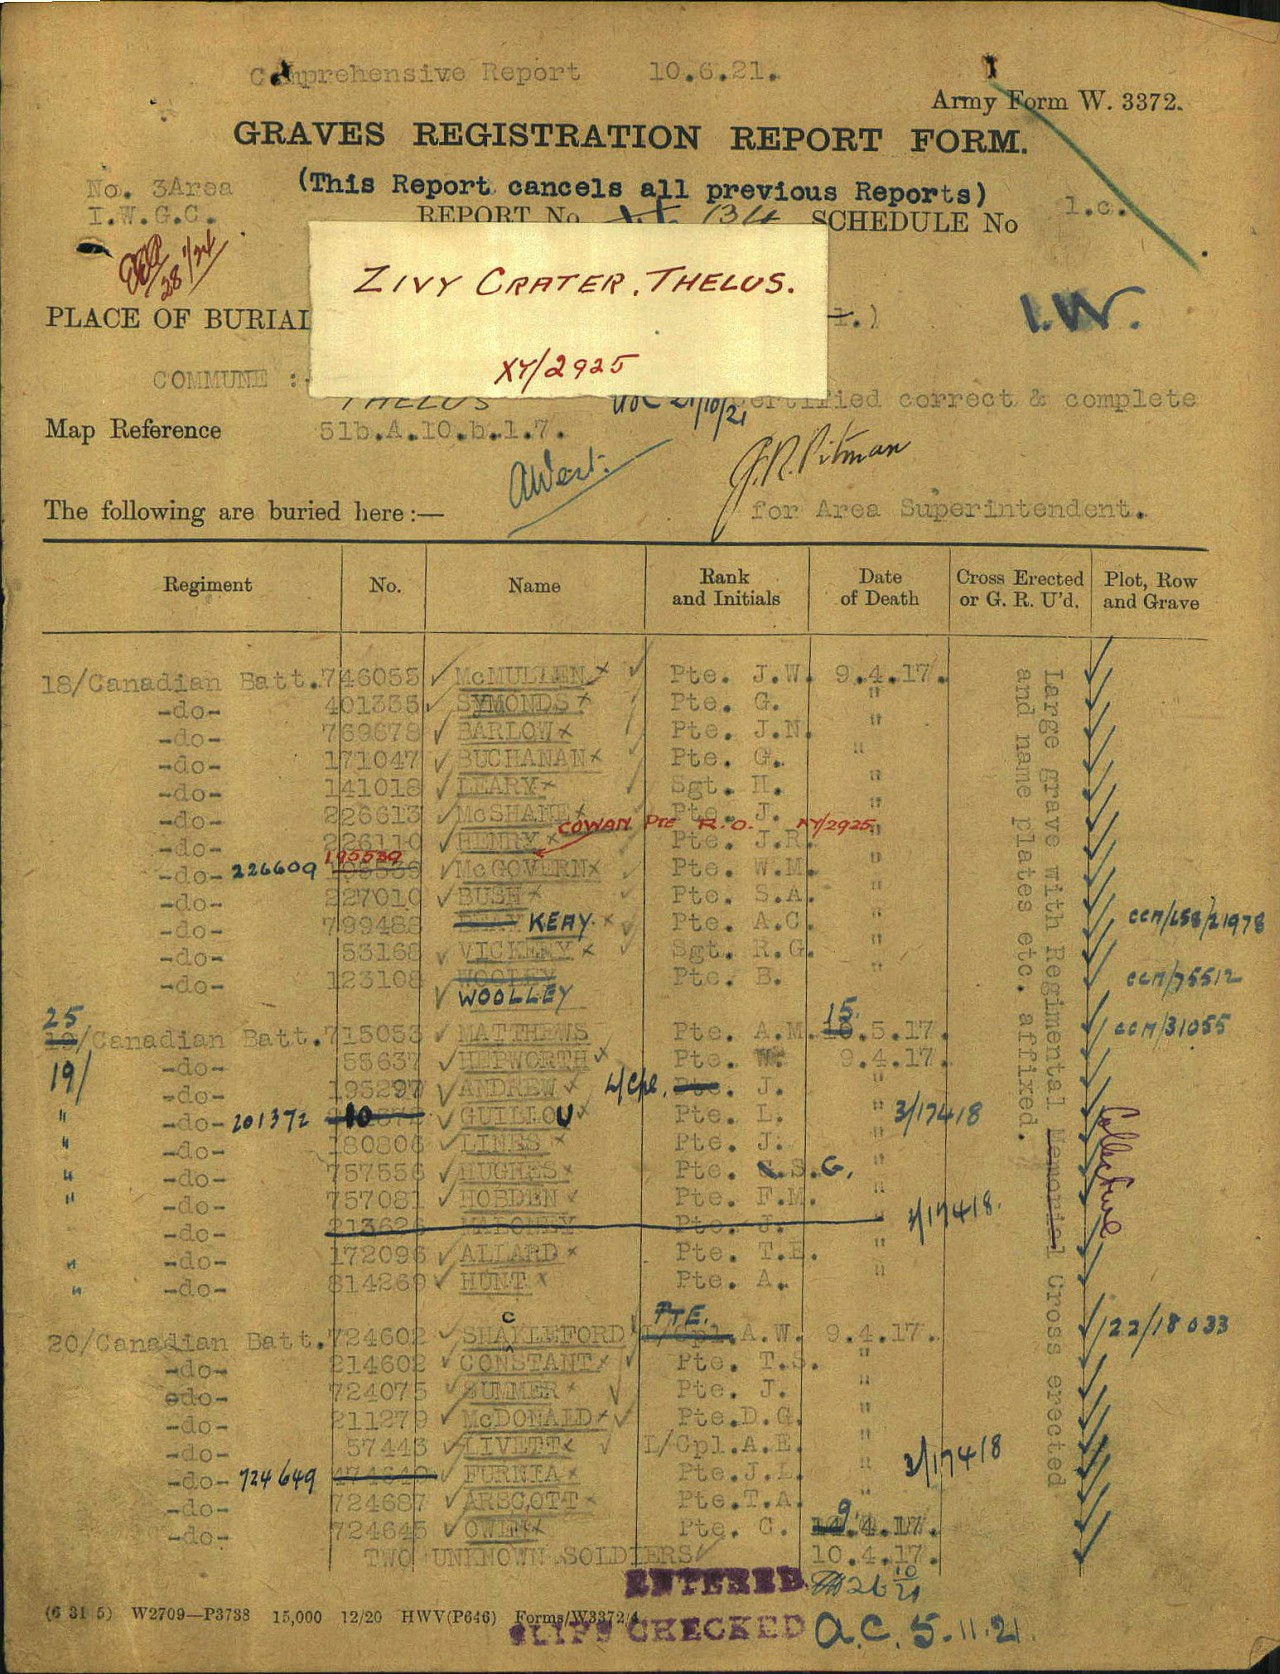 Comprehensive Report 10.6.21. I
Army Form W. 3372.
GRAVES REGISTRATION REPORT FORM.
(This Report cancels all previous Reports)
No. 3Area
I.W.G.C.
REPORT No 134 SCHEDULE No 1.c.
28/1/24
ZIVY CRATER, THELUS.
XY/2925
PLACE OF BURIAL
I.W.
COMMUNE :-
THELUS 21/10/21 certified correct & complete
Map Reference 51b.A.10.b.1.7.
AWest. J.R. Pitman
The following are buried here :— for Area Superintendent.
Regiment No. Name Rank and Initials Date of Death Cross Erected or G. R. U'd. Plot, Row and Grave
18/Canadian Batt. 746055 McMULLEN Pte. J.W. 9.4.17.
-do- 401335 SYMONDS Pte. G. "
-do- 769678 BARLOW Pte. J.N. "
-do- 171047 BUCHANAN Pte. G. "
-do- 141018 LEARY Sgt. H. "
-do- 226613 McSHANE Pte. J. "
COWAN Pte R.O. XY/2925
-do- 226110 HENRY Pte. J.R. "
195539
-do- 226609 McGOVERN Pte. W.M. "
-do- 227010 BUSH Pte. S.A. "
-do- 799488 KEAY. Pte. A.C. " CCM/658/21978
-do- 53168 VICKERY Sgt. R.G. "
-do- 123108 WOOLEY Pte. B. " CCM/75512
WOOLLEY
25 15.
19/Canadian Batt. 715053 MATTHEWS Pte. A.M. 16.5.17. CCM/31055
19/ -do- 55637 HEPWORTH Pte. W. 9.4.17.
-do- 195297 ANDREW L/Cpl. Pte. J. "
" -do- 201372 GUILLOU Pte. L. " 3/17418
" -do- 180806 LINES Pte. J. "
" -do- 757556 HUGHES Pte. S.G. "
" -do- 757081 HOBDEN Pte. F.M. "
-do- 213626 MALONEY Pte. J. 1/17418.
" -do- 172096 ALLARD Pte. T.E. "
" -do- 814269 HUNT Pte. A. "
C PTE.
20/Canadian Batt. 724602 SHAKLEFORD L/Cpl. A.W. 9.4.17. 22/18033
-do- 214602 CONSTANT Pte. T.S. "
-do- 724075 SUMMER Pte. J. "
-do- 211279 McDONALD Pte. D.G. "
-do- 57443 LIVETT L/Cpl. A.E. "
-do- 724649 FURNIA Pte. J.L. " 2/17418
-do- 724687 ARSCOTT Pte. T.A. "
-do- 724645 OWEN Pte. C. 9.4.17.
TWO UNKNOWN SOLDIERS 10.4.17.
Large grave with Regimental Memorial Cross erected
and name plates etc. affixed.
Collective
ENTERED 26/10/21
(6 31 5) W2709—P3738 15,000 12/20 HWV(P646) Forms/W3372/4
SLIPS CHECKED A.C. 5.11.21.